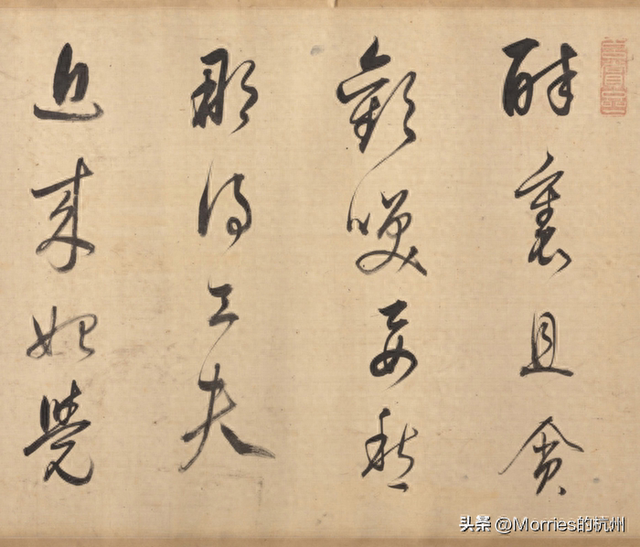 醉裏且貪
歡咲要愁
那得工夫
近來始覺
头条 @Morries的杭州